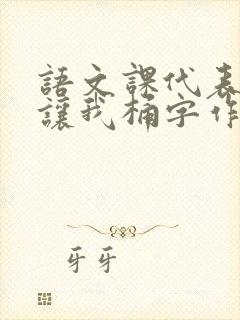 語文課代表
讓我桶字作
牙牙